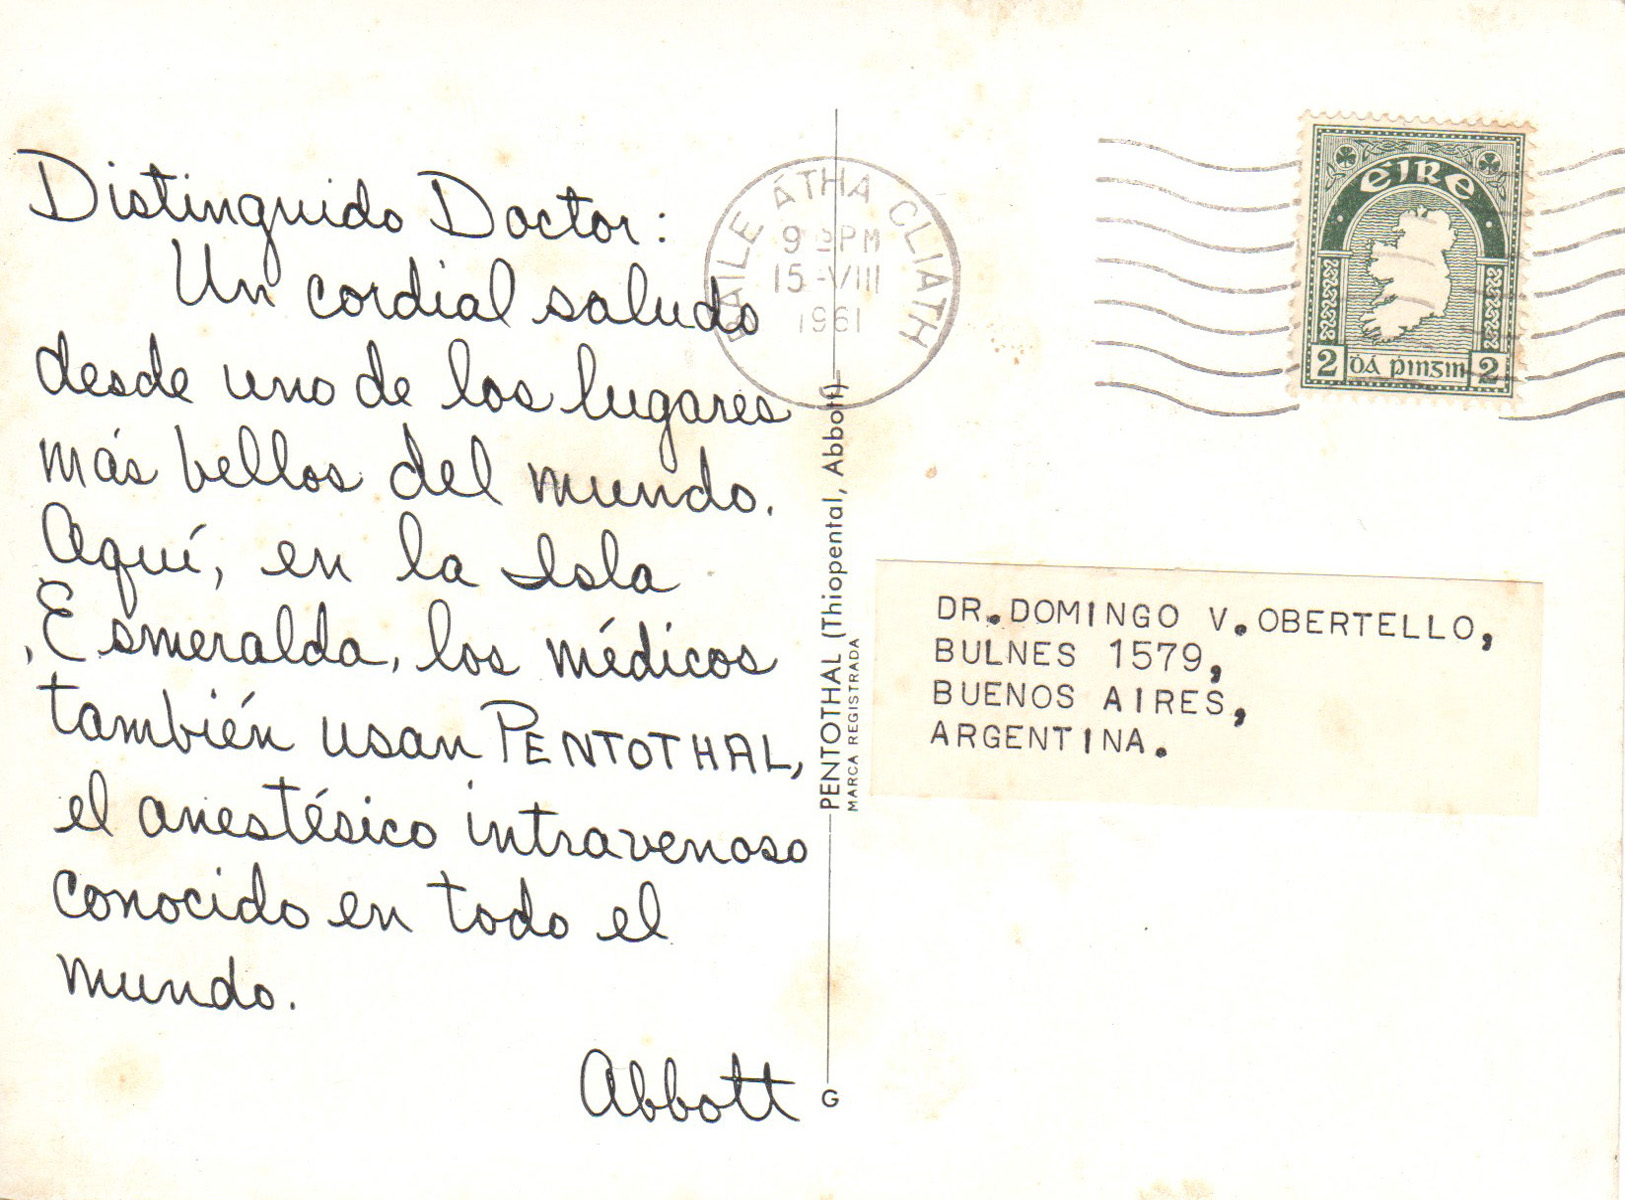 Distinguido Doctor:
Un cordial saludo
desde uno de los lugares
más bellos del mundo.
Aquí, en la Isla
Esmeralda, los médicos
también usan PENTOTHAL,
el anestésico intravenoso
conocido en todo el
mundo.
Abbott
BAILE ÁTHA CLIATH
9 PM
15-VIII
1961
PENTOTHAL (Thiopental, Abbott)
MARCA REGISTRADA
G
ÉIRE
2 DÁ PINGIN 2
DR. DOMINGO V. OBERTELLO,
BULNES 1579,
BUENOS AIRES,
ARGENTINA.